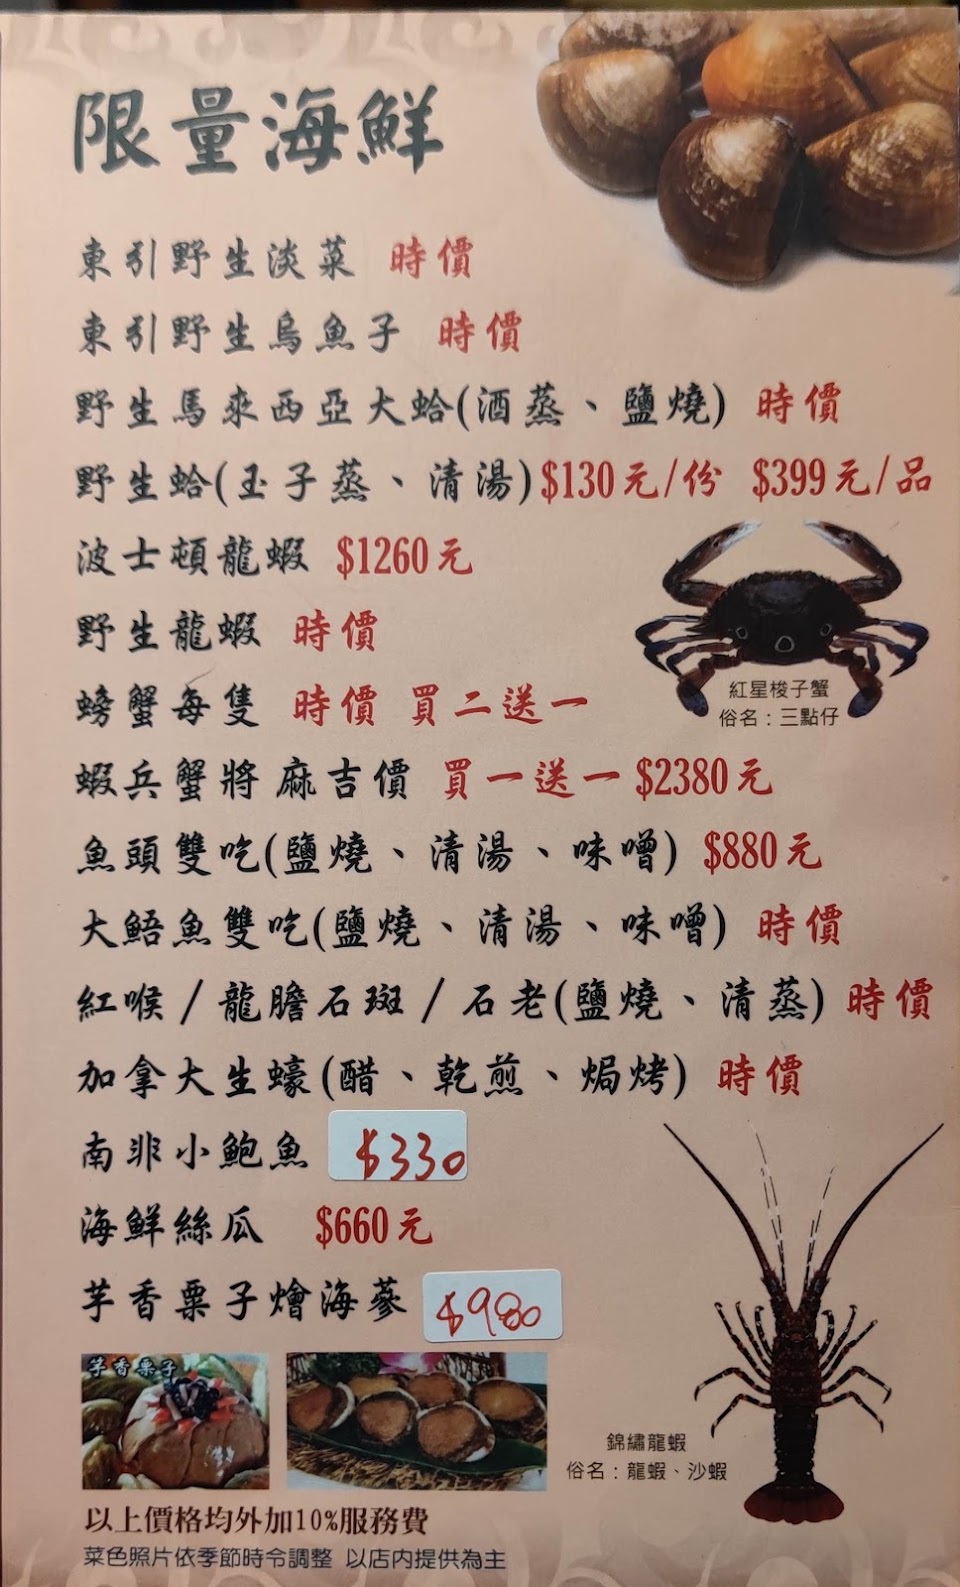 限量海鮮
東引野生淡菜 時價
東引野生烏魚子 時價
野生馬來西亞大蛤(酒蒸、鹽燒) 時價
野生蛤(玉子蒸、清湯)$130元/份 $399元/品
波士頓龍蝦 $1260元
野生龍蝦 時價
螃蟹每隻 時價 買二送一
紅星梭子蟹
俗名：三點仔
蝦兵蟹將 麻吉價 買一送一 $2380元
魚頭雙吃(鹽燒、清湯、味噌) $880元
大䱛魚雙吃(鹽燒、清湯、味噌) 時價
紅喉/龍膽石斑/石老(鹽燒、清蒸) 時價
加拿大生蠔(醋、乾煎、焗烤) 時價
南非小鮑魚 $330
海鮮絲瓜 $660元
芋香栗子燴海蔘 $980
芋香栗子
錦繡龍蝦
俗名：龍蝦、沙蝦
以上價格均外加10%服務費
菜色照片依季節時令調整 以店內提供為主